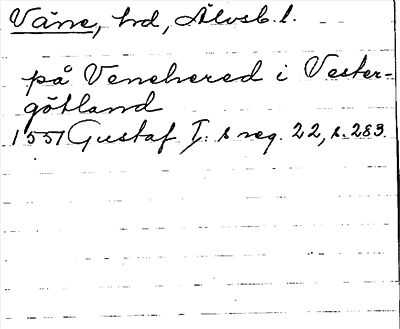 Väne, hd, Älvsb. l.
på Venehered i Vester-
götland
1551 Gustaf I: s reg. 22, s. 283.